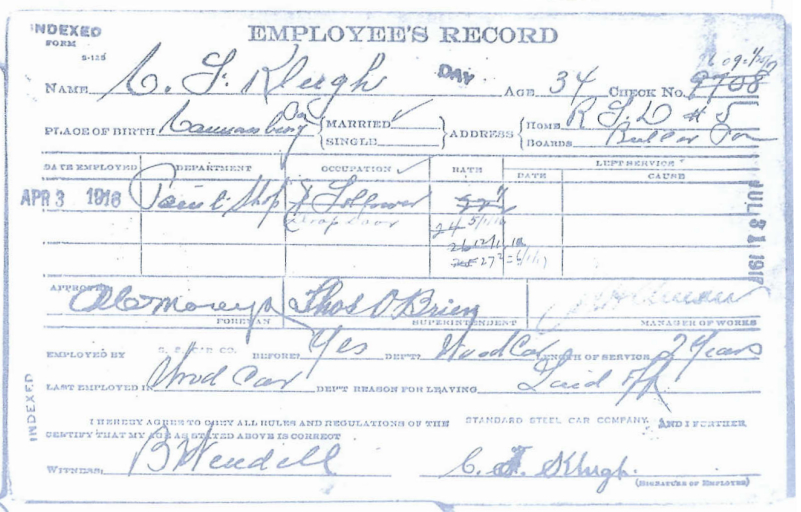 INDEXED
EMPLOYEE'S RECORD
FORM
S-125
DAY
NAME C. F. Klugh AGE 34 CHECK No. 9708
PLACE OF BIRTH Pa MARRIED ✓ ADDRESS HOME R F D # 5
SINGLE BOARDS Butler Pa
DATE EMPLOYED DEPARTMENT OCCUPATION RATE LEFT SERVICE
DATE CAUSE
APR 3 1916 Paint Shop Follower
24 5/1/16
26 12/1/16
27
JUL 31 1917
APPROVED Thos O'Brien
FOREMAN SUPERINTENDENT MANAGER OF WORKS
EMPLOYED BY S. S. CAR CO. BEFORE Yes DEP'T. Wood Car LENGTH OF SERVICE 2 Years
LAST EMPLOYED IN Wood Car DEP'T REASON FOR LEAVING Laid Off
INDEXED
I HEREBY AGREE TO OBEY ALL RULES AND REGULATIONS OF THE STANDARD STEEL CAR COMPANY. AND I FURTHER
CERTIFY THAT MY AGE AS STATED ABOVE IS CORRECT
WITNESS, B Wendell C. F. Klugh.
(SIGNATURE OF EMPLOYEE)